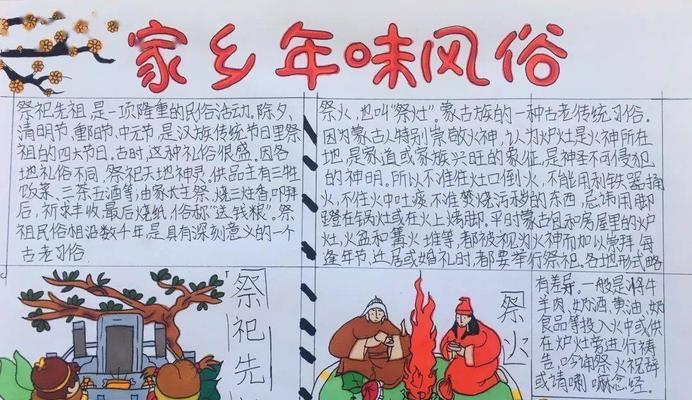 家乡年味风俗
祭祀先祖,是一项隆重的民俗活动。除夕、
清明节、重阳节、中元节,是汉族传统节日里祭
祖的四大节日。古时,这种礼俗很盛。因各
地礼俗不同,祭祀天地神灵,供品主有三牲
饭菜、三茶五酒等,由家长主祭,烧三炷香,叩拜
后,祈求丰收,最后烧纸,俗称"送钱粮"。祭
祖民俗相沿数千年,是具有深刻意义的一个
古老习俗.
祭火,也叫"祭灶"。蒙古族的一种古老传统习俗。
因为蒙古人特别崇敬火神,认为炉灶是火神所在
地,是家道或家族兴旺的象征,是神圣不可侵犯
的神明。所以不准任灶口倒火,不能用利铁器捅
火,不住火中吐痰不准焚烧污秽的东西,忌讳用脚
蹬在锅灶或在火上烤脚。平时蒙古包和房屋里的炉
灶、火盆和篝火堆等,都被视为火神而加以崇拜.每
逢年节、迁居或婚礼时,都要举行祭祀。各地形式略
有差异,一般是将牛
羊肉、奶酒、黄油、奶
食品等投入火中或供
在炉灶旁进行祷
告,吟诵祭火祝辞
或请喇嘛念经.
祭祀先
祭火